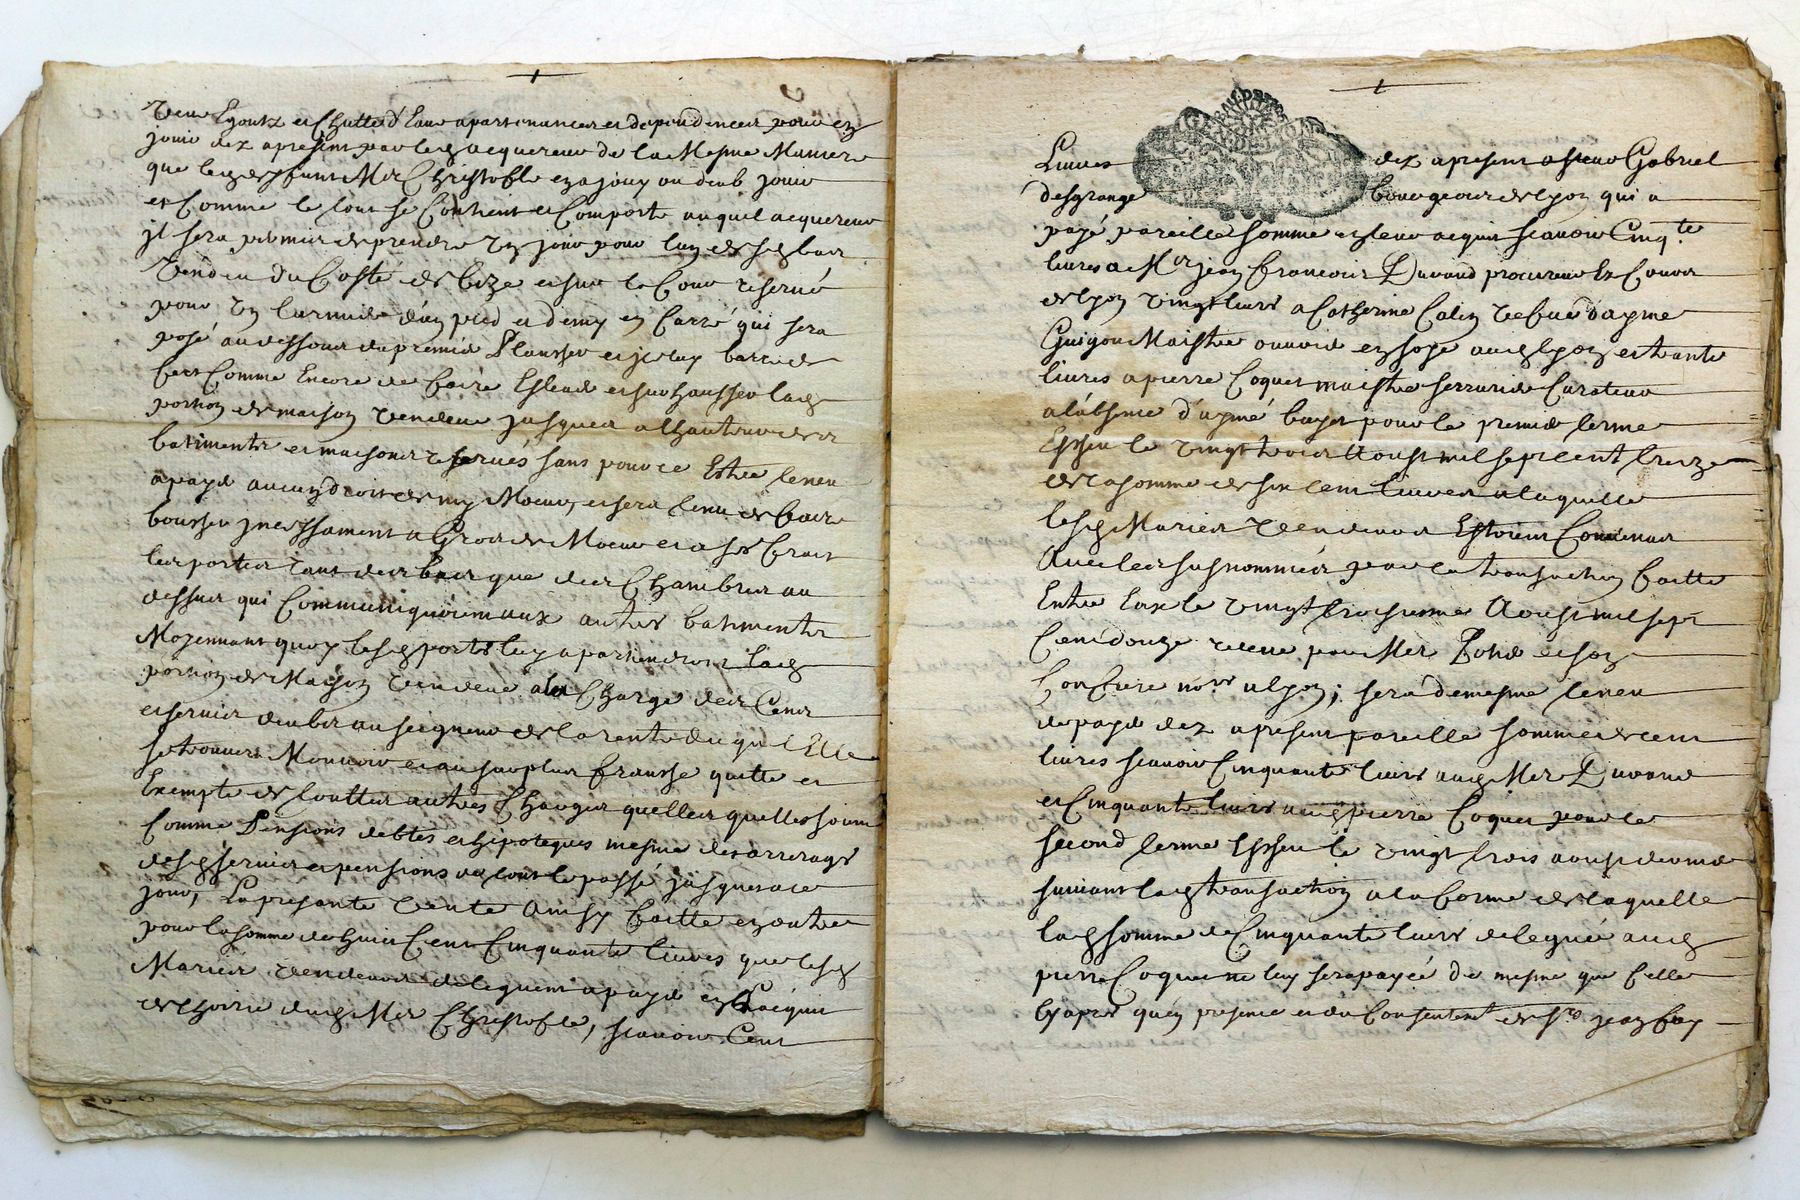 veue Egoutz et Chutte d'Eaue apartenances et dependences pour en
jouir dez apresent par led acquereur de la Mesme Maniere
que led deffunt Mre Christofle en a jouy ou deub jouir
et Comme le tout se Contient et Comporte auquel acquereur
jl sera permis de prendre un jour pour luy de ses bas
Vendeu du Costé de bize et sur la Cour reservé
pour un larmier d'un pied et demy en Carré qui sera
posé au dessous du premier Plancher et jcelluy barré de
fert Comme Encore de faire Eslever et surhausser lad
portion de maison vendeue jusques a lhauteur des
batiments et maisons reservés sans pour ce Estre teneu
a payer aucun droit de my Moeur, et sera tenu de faire
boucher jncessament a Gros de Moeur et a ses frais
les portes tant des bas que des Chambres au
dessus qui Communiquoient aux autres batiments
Moyennant quoy lesd portes luy apartiendront lad
portion de Maison vendeue a la Charge des Cens
et servis deubs au seigneur de la rente de qui Elle
se trouvera Mouvoir et au surplus franche quitte et
Exempte de touttes autres Charges quelles quelles soient
Comme Pensions debtes et hipoteques mesme des arrerages
desd servis et pensions de tout le passé jusques a ce
jour, La presente vente Ainsy faitte en outre
pour la somme de huict Cent Cinquante livres que lesd
Mariés vendeurs deleguent a payer en l'acquit
de l'hoirie dud Mre Christofle, scavoir Cent
Livres dez apresent a sieur Gabriel
desgrange bourgeois de lyon qui a
payé pareille somme en leur acquit scavoir Cinq.te
livres a Mre jean francois Durand procureur Ez Cours
de lyon vingt livres a Catherine Colin vefue d'ayme
Guigou Maistre ouvrier en soye aud lyon et trante
livres a pierre Coquet maistre serrurier Curateur
a l'absence d'aymé buyet pour le premier terme
Escheu le vingt trois Aoust mil sept cent treize
de la somme de six cent livres a laquelle
lesd Mariés vendeurs Estoient Convenus
Avec les susnommés par la transaction faitte
Entre Eux le vingt troisieme Aoust mil sept
Cent douze receue par Mre et son
Confrere nores a lyon; sera de mesme teneu
de payer dez apresent pareille somme de cent
livres scavoir Cinquante livres aud Mre Durand
et Cinquante livres aud pierre Coquet pour le
second terme Escheu le vingt trois aoust dernier
suivant lad transaction a la forme de laquelle
lad somme de Cinquante livres deleguée aud
pierre Coquet ne luy sera payée de mesme que Celle
Cy apres qu'en presence et du Consentemt de sr jean